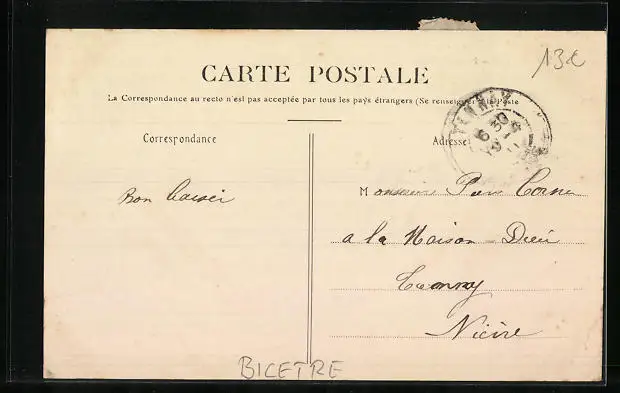 13€
CARTE POSTALE
La Correspondance au recto n'est pas acceptée par tous les pays étrangers (Se renseigner à la Poste
Correspondance
Adresse
6 30
Bon baiser
Monsieur
a la Maison Dieu
Nièvre
BICETRE